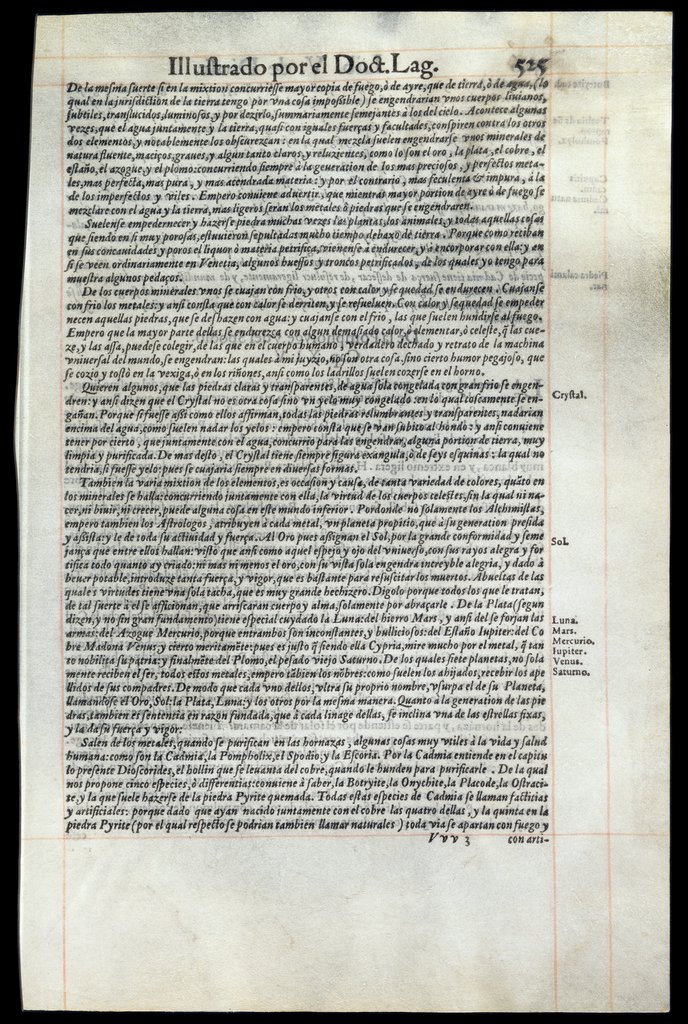 Illustrado por el Doct. Lag. 525
De la mesma suerte si en la mixtion concurriesse mayor copia de fuego, ò de ayre, que de tierra, ò de agua, (lo
qual en la jurisdiction de la tierra tengo por vna cosa impossible) se engendrarian vnos cuerpos liuianos,
subtiles, translucidos, luminosos, y por dezirlo, summariamente semejantes à los del cielo. Acontece algunas
vezes, que el agua juntamente y la tierra, quasi con iguales fuerças y facultades, conspiren contra los otros
dos elementos, y notablemente los obscurezcan: en la qual mezcla suelen engendrarse vnos minerales de
natura fluente, maciços, graues, y algun tanto claros, y reluzientes, como lo son el oro, la plata, el cobre, el
estaño, el azogue, y el plomo: concurriendo siempre à la generation de los mas preciosos, y perfectos meta-
les, mas perfecta, mas pura, y mas acendrada materia: y por el contrario, mas feculenta & impura, à la
de los imperfectos y viles. Empero conuiene aduertir, que mientras mayor portion de ayre ò de fuego se
mezclare con el agua y la tierra, mas ligeros seran los metales ò piedras que se engendraren.
Suelense empedernecer y hazerse piedra muchas vezes las plantas, los animales, y todas aquellas cosas
que siendo en si muy porosas, estuuieron sepultadas mucho tiempo debaxo de tierra. Porque como reciban
en sus concauidades y poros el liquor ò materia petrifica, vienense à endurecer, y à encorporar con ella: y an
si se veen ordinariamente en Venetia, algunos huessos y troncos petrificados, de los quales yo tengo para
muestra algunos pedaços.
De los cuerpos minerales vnos se cuajan con frio, y otros con calor y sequedad se endurecen. Cuajanse
con frio los metales: y ansi consta que con calor se derriten, y se resueluen. Con calor y sequedad se empeder
necen aquellas piedras, que se deshazen con agua: y cuajanse con el frio, las que suelen hundirse al fuego.
Empero que la mayor parte dellas se endurezca con algun demasiado calor, ò elementar, ò celeste, q̃ las cue-
ze, y las assa, puedese colegir, de las que en el cuerpo humano, verdadero dechado y retrato de la machina
vniuersal del mundo, se engendran: las quales à mi juyzio, no son otra cosa, sino cierto humor pegajoso, que
se cozio y tostò en la vexiga, ò en los riñones, ansi como los ladrillos suelen cozerse en el horno.
Quieren algunos, que las piedras claras y transparentes, de agua sola congelada con gran frio se engen-
dren: y ansi dizen que el Crystal no es otra cosa sino vn yelo muy congelado: en lo qual toscamente se en-
gañan. Porque si fuesse assi como ellos affirman, todas las piedras relumbrantes y transparentes, nadarian
encima del agua, como suelen nadar los yelos: empero consta que se van subito al hondo: y ansi conuiene
tener por cierto, que juntamente con el agua, concurrio para las engendrar, alguna portion de tierra, muy
limpia y purificada. De mas desto, el Crystal tiene siempre figura exangula, ò de seys esquinas: la qual no
tendria, si fuesse yelo: pues se cuajaria siempre en diuersas formas.
Crystal.
Tambien la varia mixtion de los elementos, es occasion y causa, de tanta variedad de colores, quãto en
los minerales se halla: concurriendo juntamente con ella, la virtud de los cuerpos celestes, sin la qual ni na-
cer, ni biuir, ni crecer, puede alguna cosa en este mundo inferior. Por donde no solamente los Alchimistas,
empero tambien los Astrologos, atribuyen à cada metal, vn planeta propitio, que à su generation presida
y assista: y le de toda su actiuidad y fuerça. Al Oro pues assignan el Sol, por la grande conformidad y seme
jança que entre ellos hallan: visto que ansi como aquel espejo y ojo del vniuerso, con sus rayos alegra y for
tifica todo quanto ay criado: ni mas ni menos el oro, con su vista sola engendra increyble alegria, y dado à
beuer potable, introduze tanta fuerça, y vigor, que es bastante para resuscitar los muertos. A bueltas de las
quales virtudes tiene vna sola tacha, que es muy grande hechizero. Digolo porque todos los que le tratan,
de tal suerte à el se afficionan, que arriscaran cuerpo y alma, solamente por abraçarle. De la Plata (segun
dizen, y no sin gran fundamento) tiene especial cuydado la Luna: del hierro Mars, y ansi del se forjan las
armas: del Azogue Mercurio, porque entrambos son inconstantes, y bulliciosos: del Estaño Iupiter: del Co
bre Madona Venus, y cierto meritamẽte: pues es justo q̃ siendo ella Cypria, mire mucho por el metal, q̃ tan
to nobilita su patria: y finalmẽte del Plomo, el pesado viejo Saturno. De los quales siete planetas, no sola
mente reciben el ser, todos estos metales, empero tãbien los nõbres: como suelen los ahijados, recebir los ape
llidos de sus compadres. De modo que cada vno dellos, vltra su proprio nombre, vsurpa el de su Planeta,
llamandose el Oro, Sol: la Plata, Luna: y los otros por la mesma manera. Quanto à la generation de las pie
dras, tambien es sententia en razon fundada, que à cada linage dellas, se inclina vna de las estrellas fixas,
y la da su fuerça y vigor.
Sol.
Luna.
Mars.
Mercurio.
Iupiter.
Venus.
Saturno.
Salen de los metales, quando se purifican en las hornazas, algunas cosas muy vtiles à la vida y salud
humana: como son la Cadmia, la Pompholix, el Spodio, y la Escoria. Por la Cadmia entiende en el capitu
lo presente Dioscorides, el hollin que se leuanta del cobre, quando le hunden para purificarle. De la qual
nos propone cinco especies, ò differentias: conuiene à saber, la Botryite, la Onychite, la Placode, la Ostraci-
te, y la que suele hazerse de la piedra Pyrite quemada. Todas estas especies de Cadmia se llaman facticias
y artificiales: porque dado que ayan nacido juntamente con el cobre las quatro dellas, y la quinta en la
piedra Pyrite (por el qual respecto se podrian tambien llamar naturales) toda via se apartan con fuego y
Vvv 3 con arti-